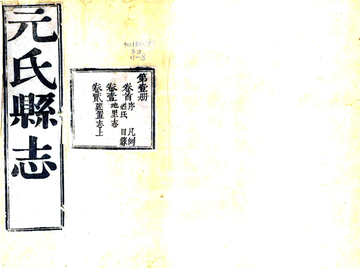 元氏縣志
第壹册
卷首 序 凡例
姓氏 目錄
卷壹 地里志
卷貳 建置志上